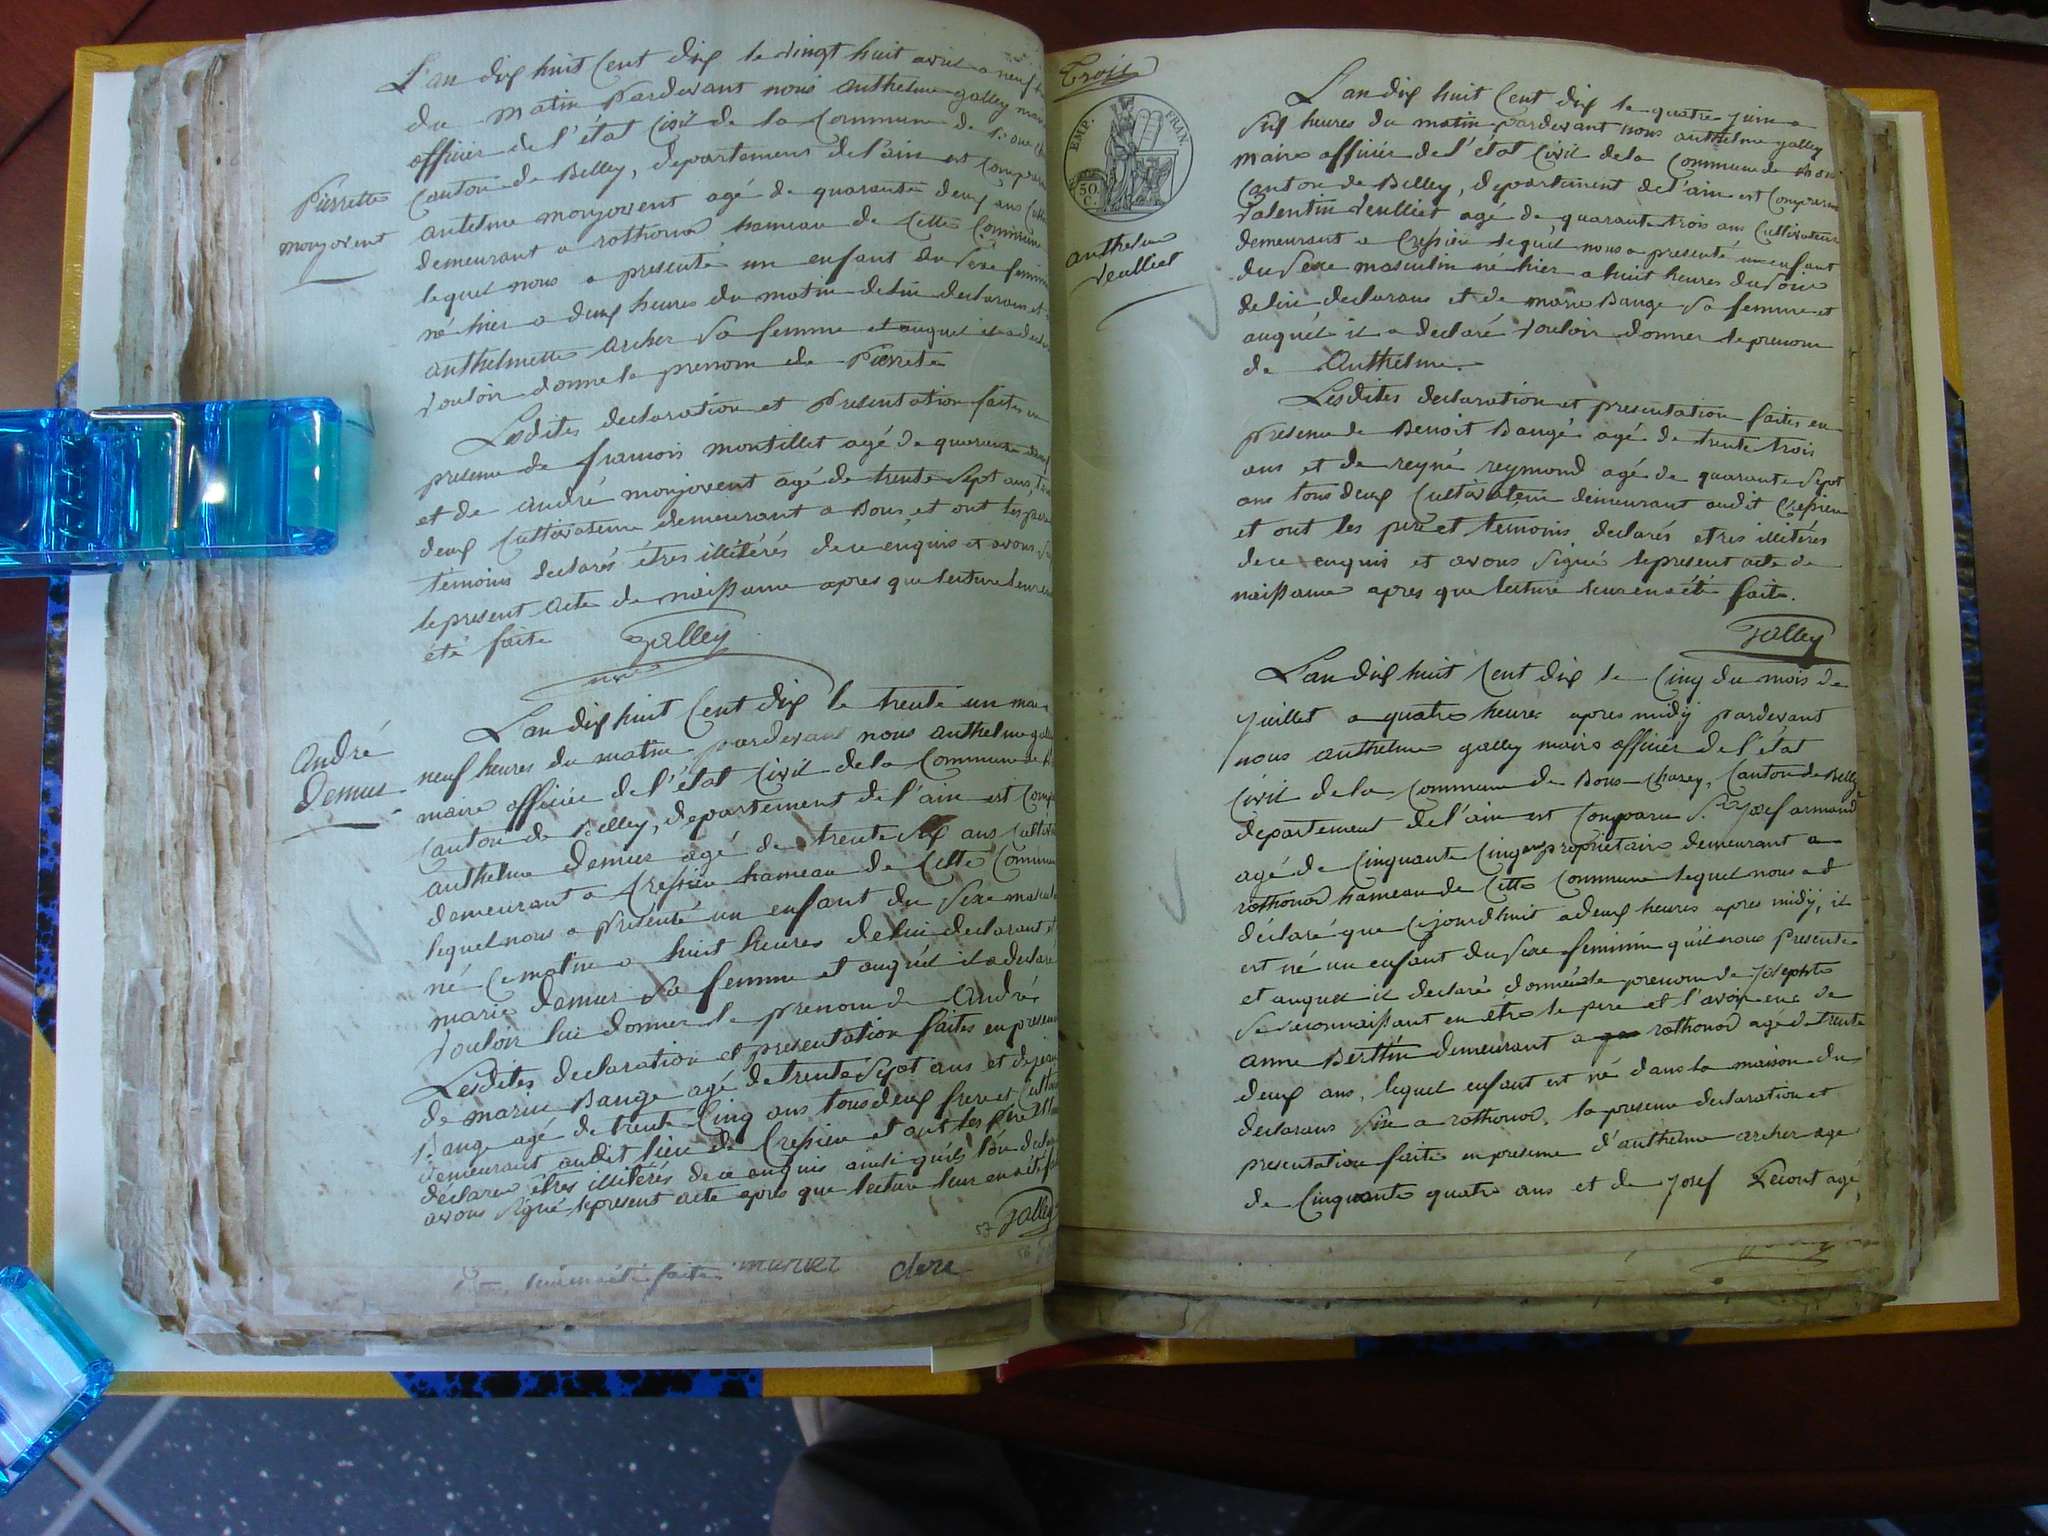 L'an dix huit Cent dix le vingt huit avril a neuf
du matin pardevant nous anthelme galley
officier de l'état Civil de la Commune de
Pierrette
monjovent
Canton de Belley, departement de l'ain est
antelme monjovent agé de quarante deux ans
demeurant a rothonod hameau de Cette Commune
lequel nous a presenté un enfant du Sexe
né hier a deux heures du matin de lui declarant et
anthelmette archer Sa femme et auquel il a
vouloir donne le prenom de Pierrete
Lesdites declaration et presentation faites en
presence de francois montillet agé de quarante
et de andré monjovent agé de trente Sept ans,
deux Cultivateurs demeurant a Bons, et ont les pere
témoins declarés êtres illitérés de ce enquis et avons
le present acte de naissance apres que lecture leur
été faite Galley
andré
demur
L'an dix huit Cent dix le trente un
neuf heures du matin pardevant nous anthelme
maire officier de l'état Civil de la Commune de
Canton de Belley, departement de l'ain est
anthelme demur agé de trente Six ans
demeurant a Crepieu hameau de Cette Commune
lequel nous a presenté un enfant du Sexe
né Ce matin a huit heures de lui declarant et
marie demur Sa femme et auquel il a declaré
vouloir lui donner le prenom de André
Lesdites declaration et presentation faites en presence
de marin Bange agé de trente Sept ans et de
Bange agé de trente Cinq ans tous deux frere et
demeurant audit lieu de Crepieu et ont les pere
declaré êtres illitérés de ce enquis ainsi qu'ils l'on
avons Signé le present acte apres que lecture leur en a été
57 Galley
leur en a été faite clere
Trois
EMP. FRAN.
50
C.
anthelme
veulliet
L'an dix huit Cent dix le quatre juin a
Six heures du matin pardevant nous anthelme galley
maire officier de l'état Civil de la Commune de
Canton de Belley, departement de l'ain est
Valentin veulliet agé de quarante trois ans Cultivateur
demeurant a Crepieu lequel nous a presenté un enfant
du Sexe masculin né hier a huit heures du Soir
de lui declarans et de marie Bange Sa femme et
auquel il a declaré vouloir donner le prenom
de Anthelme.
Lesdites declaration et presentation faites en
presence de Benoit Bangé agé de trente trois
ans et de reyné reymond agé de quarante Sept
ans tous deux Cultivateurs demeurant audit Crepieu
et ont les pere et témoins declarés etres illitérés
de ce enquis et avons Signé le present acte de
naissance apres que lecture leur en a été faite.
Galley
L'an dix huit Cent dix le Cinq du mois de
juillet a quatre heures apres midy pardevant
nous anthelme galley maire officier de l'état
Civil de la Commune de Bons-Chazey, Canton de Belley
departement de l'ain est Comparu Sr. josef armand
agé de Cinquante Cinq ans proprietaire demeurant a
rothonod hameau de Cette Commune lequel nous a d
declaré que Cejourdhuit a deux heures apres midy, il
est né un enfant du Sexe feminin qu'il nous presente
et auquel il declare donner le prenom de josephte
Se reconnaissant en être le pere et l'avoir eue de
anne Berttin demeurant a rothonod agé de trente
deux ans, lequel enfant est né dans la maison du
declarans Sise a rothonod, la presente declaration et
presentation faite en presence d'anthelme archer age
de Cinquante quatre ans et de josef agé